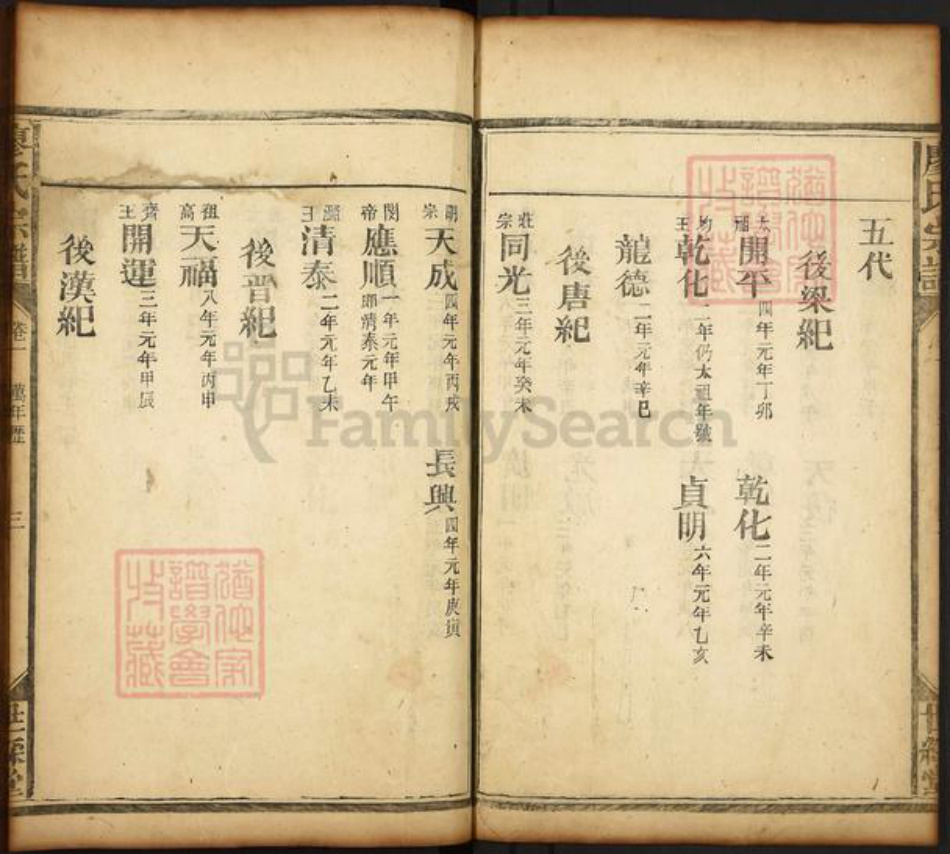 五代
後梁紀
太祖 開平 四年元年丁卯 乾化 二年元年辛未
均王 乾化 二年仍太祖年號 貞明 六年元年乙亥
龍德 二年元年辛巳
後唐紀
莊宗 同光 三年元年癸未
明宗 天成 四年元年丙戌 長興 四年元年庚寅
閔帝 應順 一年元年甲午即清泰元年
潞王 清泰 二年元年乙未
後晉紀
高祖 天福 八年元年丙申
齊王 開運 三年元年甲辰
後漢紀
廖氏宗譜 卷一 萬年歷 三 世綵堂
FamilySearch